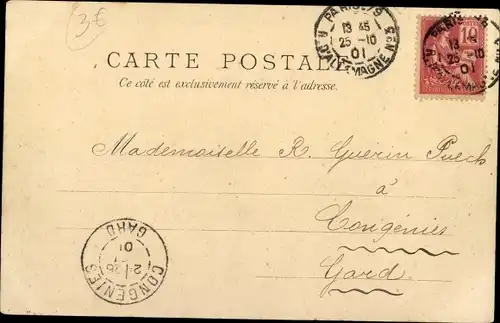 3€
PARIS-19
13 45
25 -10
01
R. D'ALLEMAGNE
10
PARIS
13
25
01
CARTE POSTALE
Ce côté est exclusivement réservé à l'adresse.
Mademoiselle R. Guerin Puech
à
Congénies
Gard.
CONGENIES
GARD
01